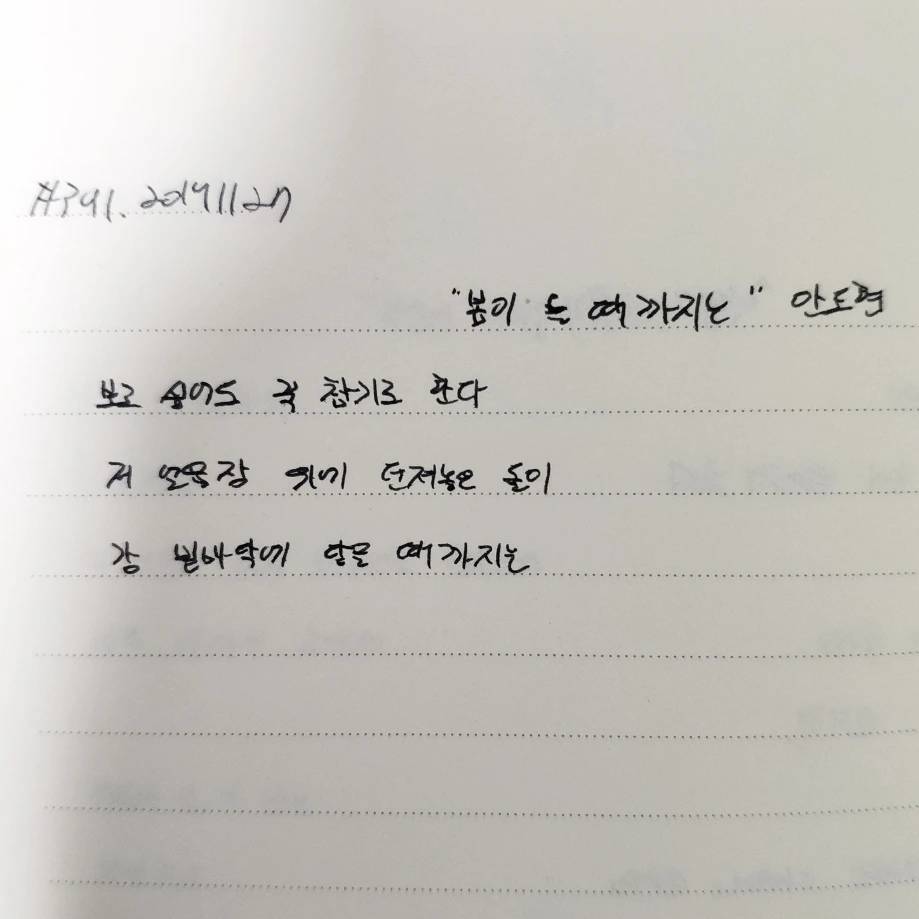 #391. 20191127
"봄이 올 때까지는" 안도현
보고 싶어도 꾹 참기로 한다
저 얼음장 위에 던져놓은 돌이
강 밑바닥에 닿을 때까지는